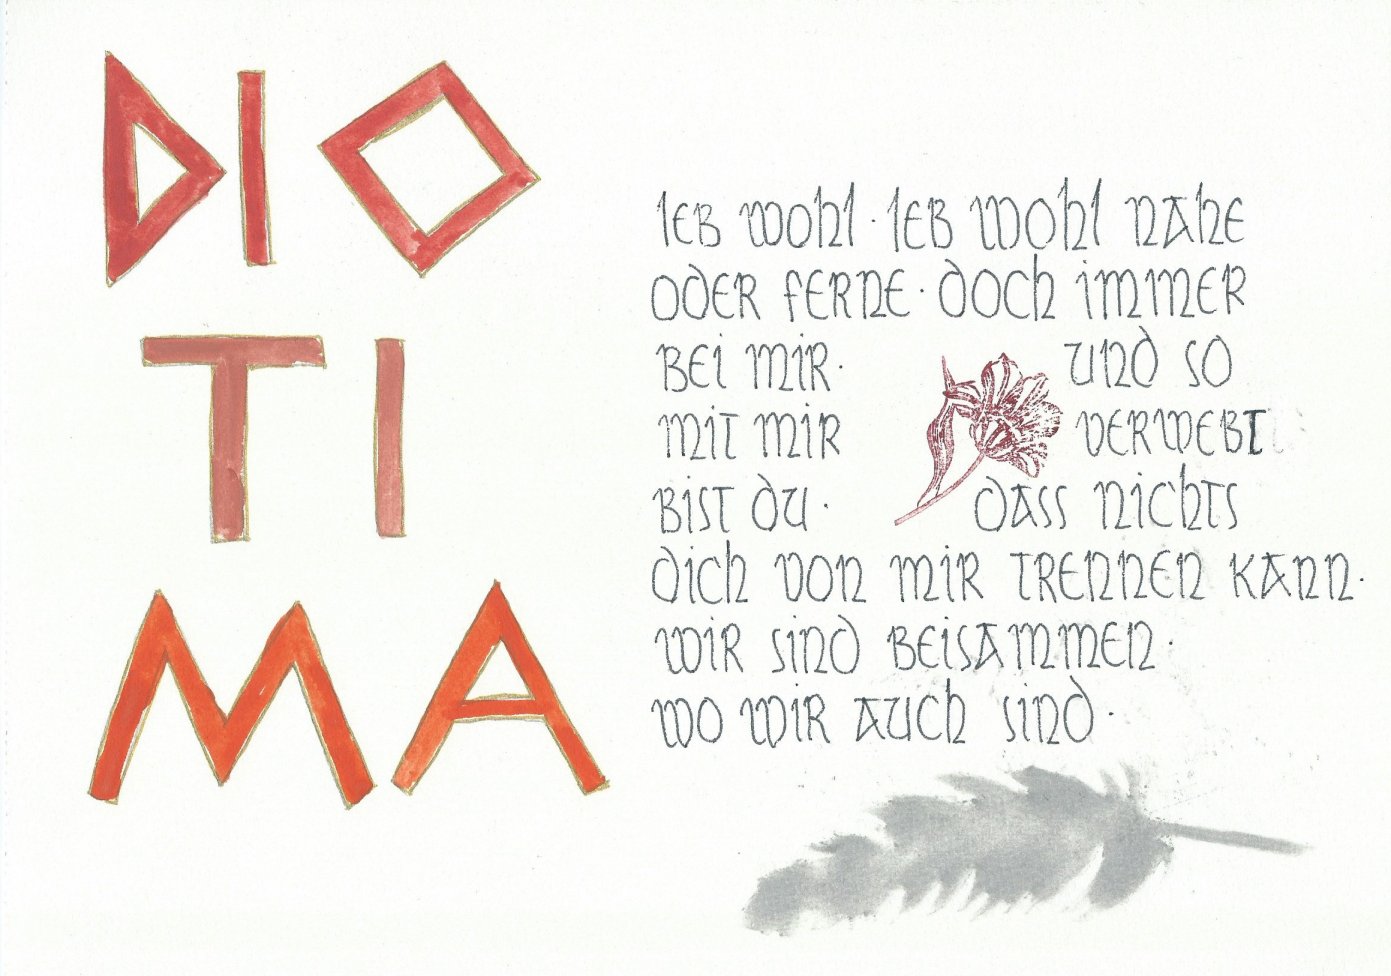 DIO
TI
MA
leb wohl · leb wohl nahe
oder ferne · doch immer
bei mir · und so
mit mir verwebt
bist du · dass nichts
dich von mir trennen kann ·
wir sind beisammen ·
wo wir auch sind ·